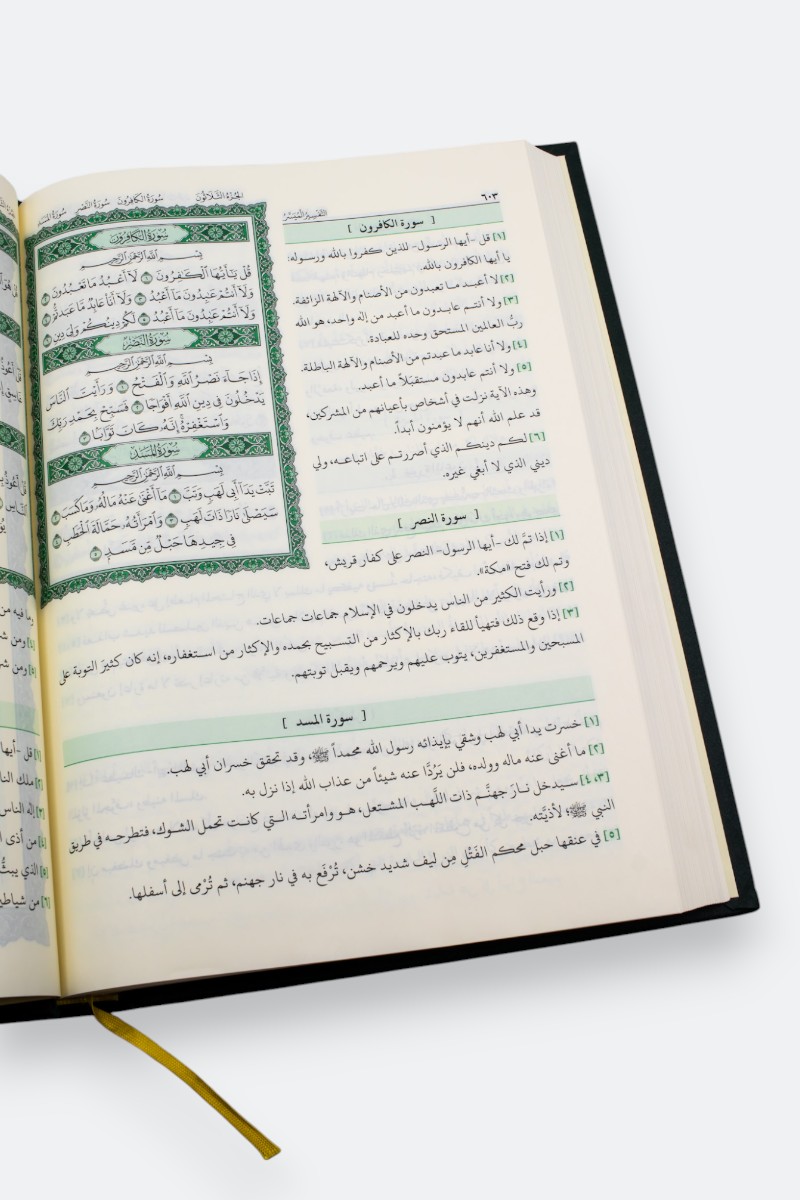 ٦٠٣
التفسير الميسر
الجزء الثلاثون سورة الكافرون سورة النصر سورة المسد
سُورَةُ الكَافِرُونَ
بِسْمِ ٱللَّهِ ٱلرَّحْمَٰنِ ٱلرَّحِيمِ
قُلْ يَٰٓأَيُّهَا ٱلْكَٰفِرُونَ ١ لَآ أَعْبُدُ مَا تَعْبُدُونَ ٢
وَلَآ أَنتُمْ عَٰبِدُونَ مَآ أَعْبُدُ ٣ وَلَآ أَنَا۠ عَابِدٌ مَّا عَبَدتُّمْ ٤
وَلَآ أَنتُمْ عَٰبِدُونَ مَآ أَعْبُدُ ٥ لَكُمْ دِينُكُمْ وَلِىَ دِينِ ٦
سُورَةُ النَّصْرِ
بِسْمِ ٱللَّهِ ٱلرَّحْمَٰنِ ٱلرَّحِيمِ
إِذَا جَآءَ نَصْرُ ٱللَّهِ وَٱلْفَتْحُ ١ وَرَأَيْتَ ٱلنَّاسَ
يَدْخُلُونَ فِى دِينِ ٱللَّهِ أَفْوَاجًا ٢ فَسَبِّحْ بِحَمْدِ رَبِّكَ
وَٱسْتَغْفِرْهُ إِنَّهُۥ كَانَ تَوَّابًۢا ٣
سُورَةُ المَسَدِ
بِسْمِ ٱللَّهِ ٱلرَّحْمَٰنِ ٱلرَّحِيمِ
تَبَّتْ يَدَآ أَبِى لَهَبٍ وَتَبَّ ١ مَآ أَغْنَىٰ عَنْهُ مَالُهُۥ وَمَا كَسَبَ ٢
سَيَصْلَىٰ نَارًا ذَاتَ لَهَبٍ ٣ وَٱمْرَأَتُهُۥ حَمَّالَةَ ٱلْحَطَبِ ٤
فِى جِيدِهَا حَبْلٌ مِّن مَّسَدٍۭ ٥
[ سورة الكافرون ]
[١] قل -أيها الرسول- للذين كفروا بالله ورسوله:
يا أيها الكافرون بالله.
[٢] لا أعبد ما تعبدون من الأصنام والآلهة الزائفة.
[٣] ولا أنتم عابدون ما أعبد من إله واحد، هو الله
ربُّ العالمين المستحق وحده للعبادة.
[٤] ولا أنا عابد ما عبدتم من الأصنام والآلهة الباطلة.
[٥] ولا أنتم عابدون مستقبلاً ما أعبد.
وهذه الآية نزلت في أشخاص بأعيانهم من المشركين،
قد علم الله أنهم لا يؤمنون أبداً.
[٦] لكم دينكم الذي أصررتم على اتباعه، ولي
ديني الذي لا أبغي غيره.
[ سورة النصر ]
[١] إذا تمَّ لك -أيها الرسول- النصر على كفار قريش،
وتم لك فتح «مكة».
[٢] ورأيت الكثير من الناس يدخلون في الإسلام جماعات جماعات.
[٣] إذا وقع ذلك فتهيأ للقاء ربك بالإكثار من التسبيح بحمده والإكثار من استغفاره، إنه كان كثيرَ التوبة على
المسبحين والمستغفرين، يتوب عليهم ويرحمهم ويقبل توبتهم.
[ سورة المسد ]
[١] خسرت يدا أبي لهب وشقي بإيذائه رسول الله محمداً ﷺ، وقد تحقق خسران أبي لهب.
[٢] ما أغنى عنه ماله وولده، فلن يَرُدَّا عنه شيئاً من عذاب الله إذا نزل به.
[٣، ٤] سيدخل نارَ جهنَّم ذات اللَّهب المشتعل، هو وامرأته التي كانت تحمل الشوك، فتطرحه في طريق
النبي ﷺ، لأذيَّته.
[٥] في عنقها حبل محكم الفَتْلِ مِن ليف شديد خشن، تُرْفَع به في نار جهنم، ثم تُرْمى إلى أسفلها.